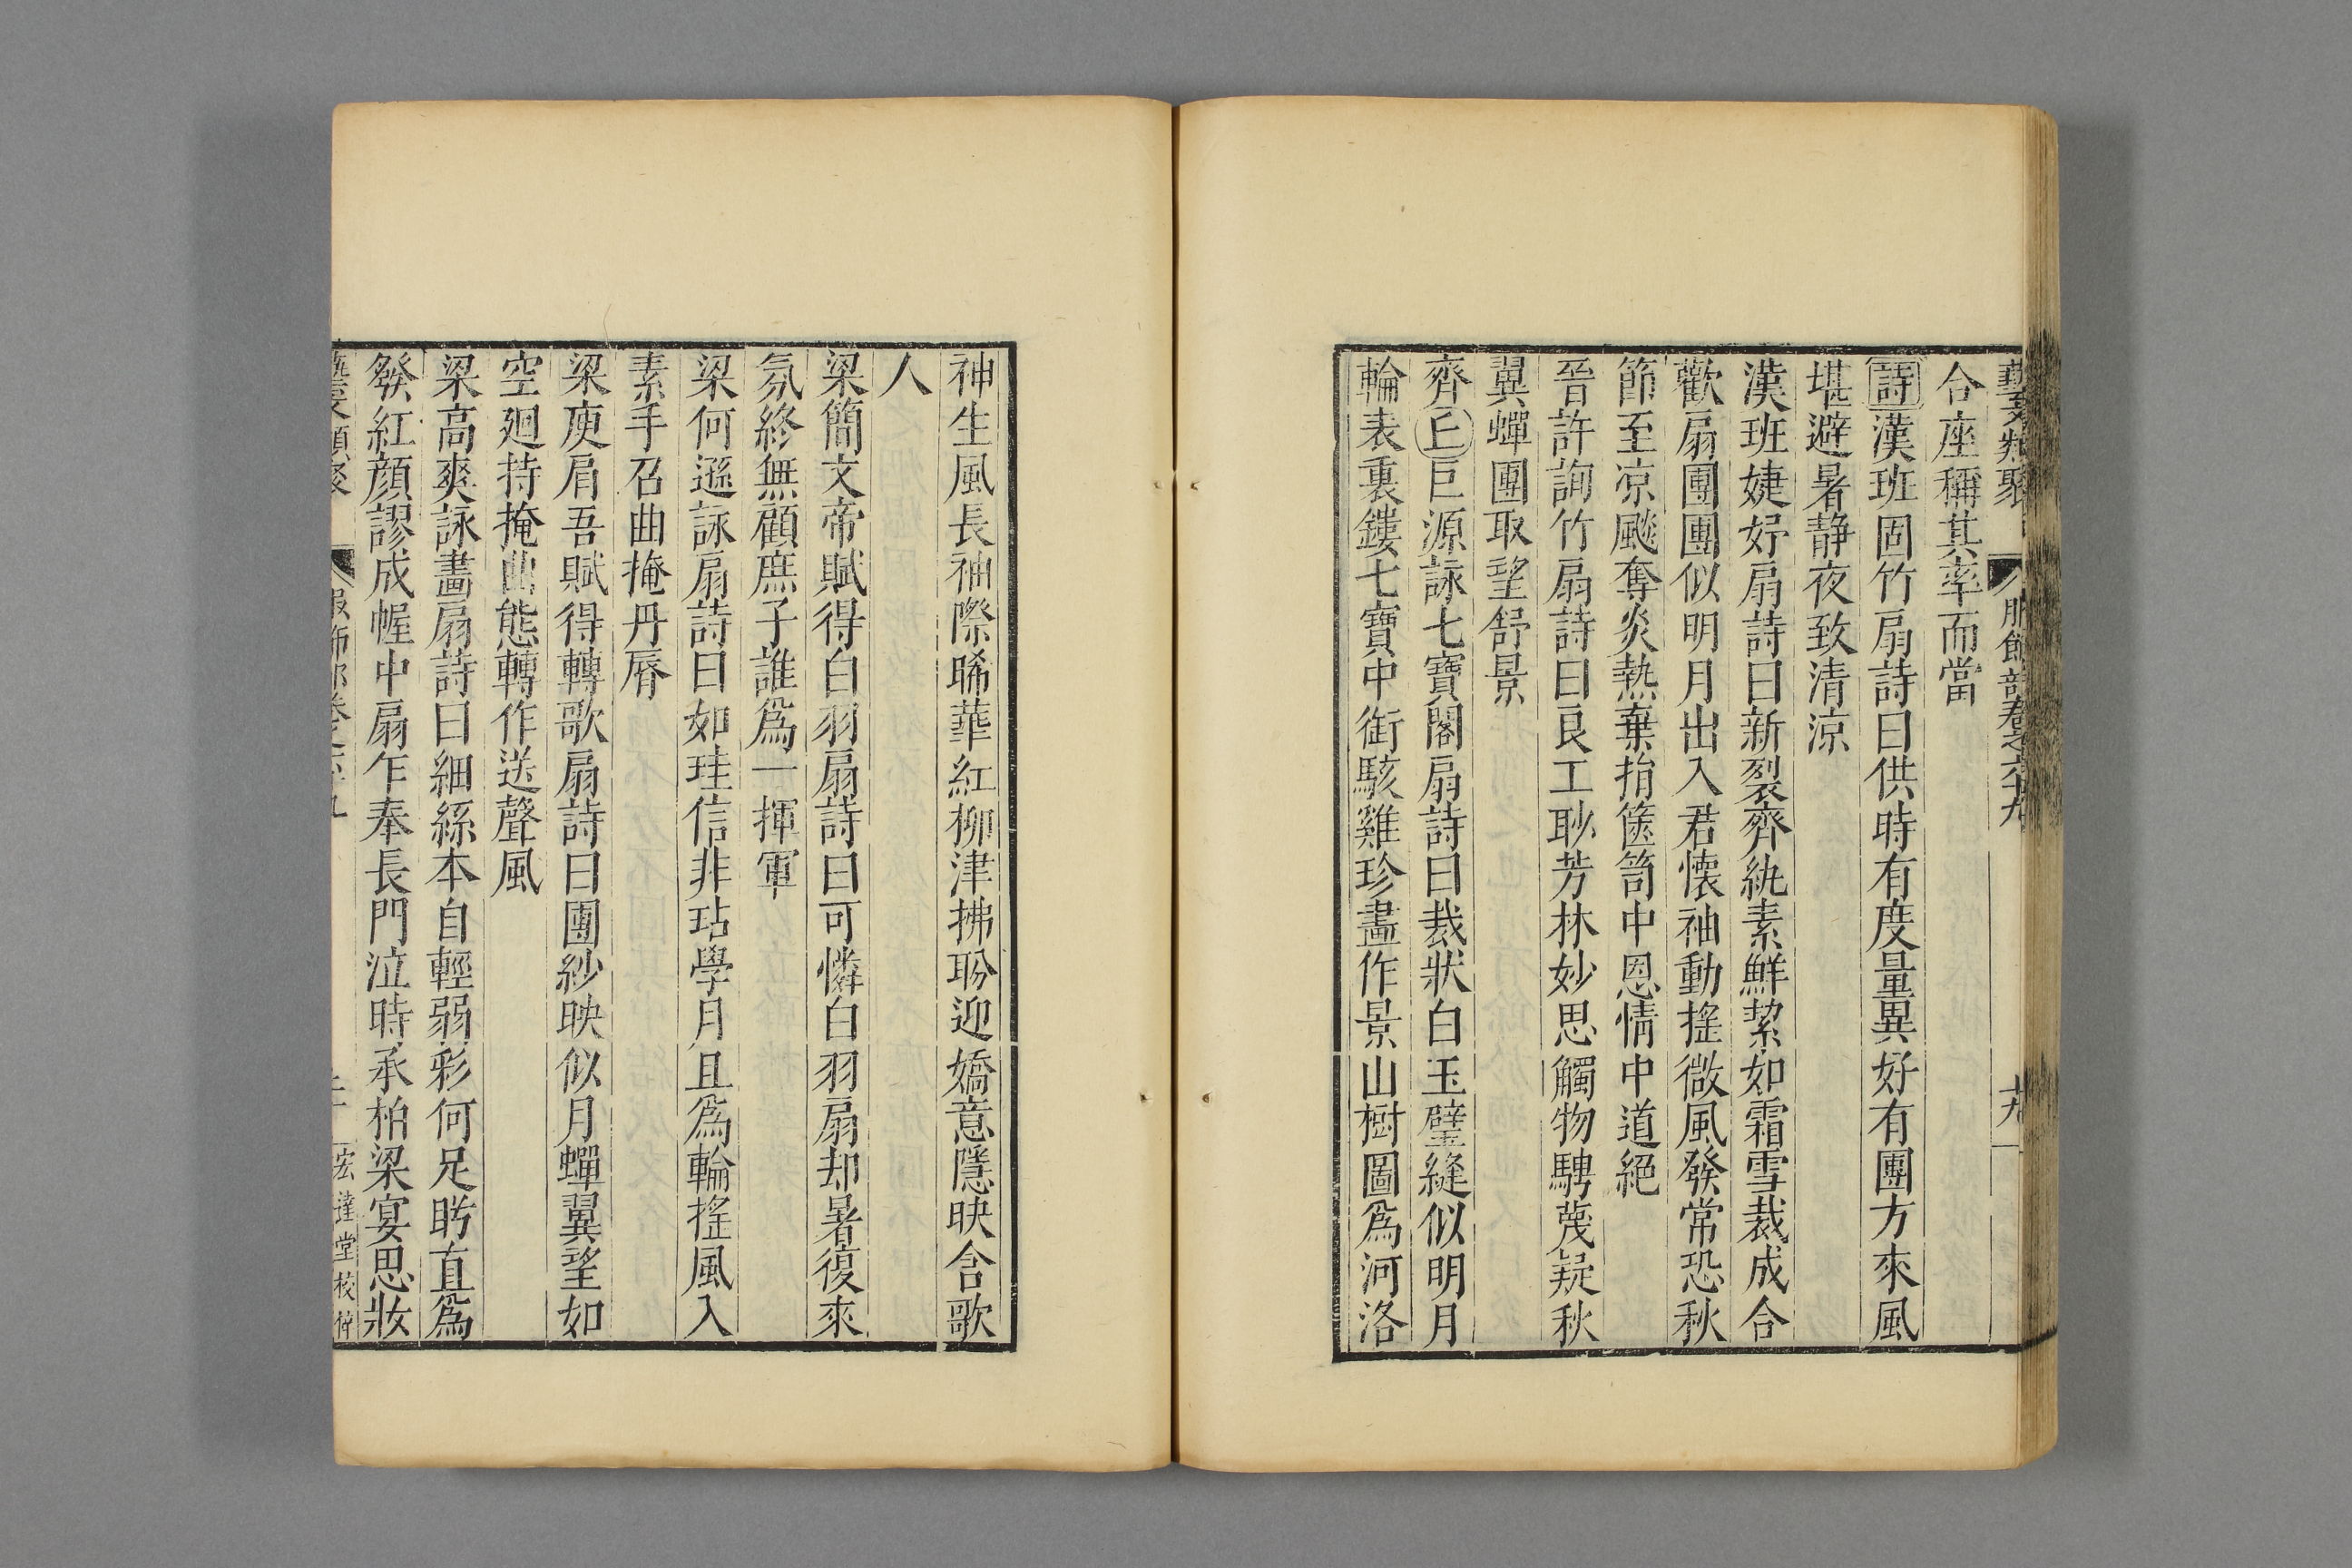 藝文類聚 服飾部卷之六十九 十九
合座稱其率而當
詩漢班固竹扇詩曰供時有度量異好有團方來風
堪避暑静夜致清涼
漢班婕妤扇詩曰新裂齊紈素鮮絜如霜雪裁成合
歡扇團團似明月出入君懐袖動摇微風發常恐秋
節至凉颷奪炎熱棄捐篋笥中恩情中道絕
晉許詢竹扇詩曰良工眇芳林妙思觸物騁篾疑秋
翼蟬團取望舒景
齊丘巨源詠七寶閣扇詩曰裁狀白玉璧縫似明月
輪表裏鏤七寶中銜駭雞珍畫作景山樹圖爲河洛
神生風長袖際晞華紅柳津拂盼迎嬌意隱映含歌
人
梁簡文帝賦得白羽扇詩曰可憐白羽扇却暑復來
氛終無顧庶子誰爲一揮軍
梁何遜詠扇詩曰如珪信非玷學月且爲輪摇風入
素手召曲掩丹脣
梁庾肩吾賦得轉歌扇詩曰團紗映似月蟬翼望如
空廻持掩曲態轉作送聲風
梁高爽詠畫扇詩曰細絲本自輕弱彩何足眄直爲
發紅顔謬成幄中扇乍奉長門泣時承柏梁宴思妝
藝文類聚 服飾部卷之六十九 二十 宏達堂校